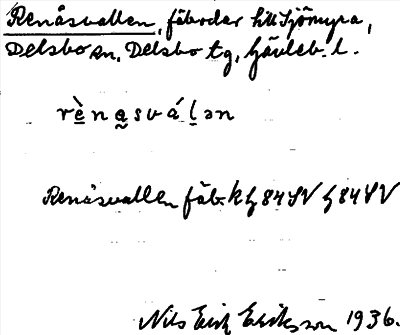 Renåsvallen, fäbodar till Sjömyra,
Delsbo sn, Delsbo tg, Gävleb. l.
rènąsváḷən
Renåsvallen fäb. k G 84 SV G 84 SV
Nils Erik Eriksson 1936.